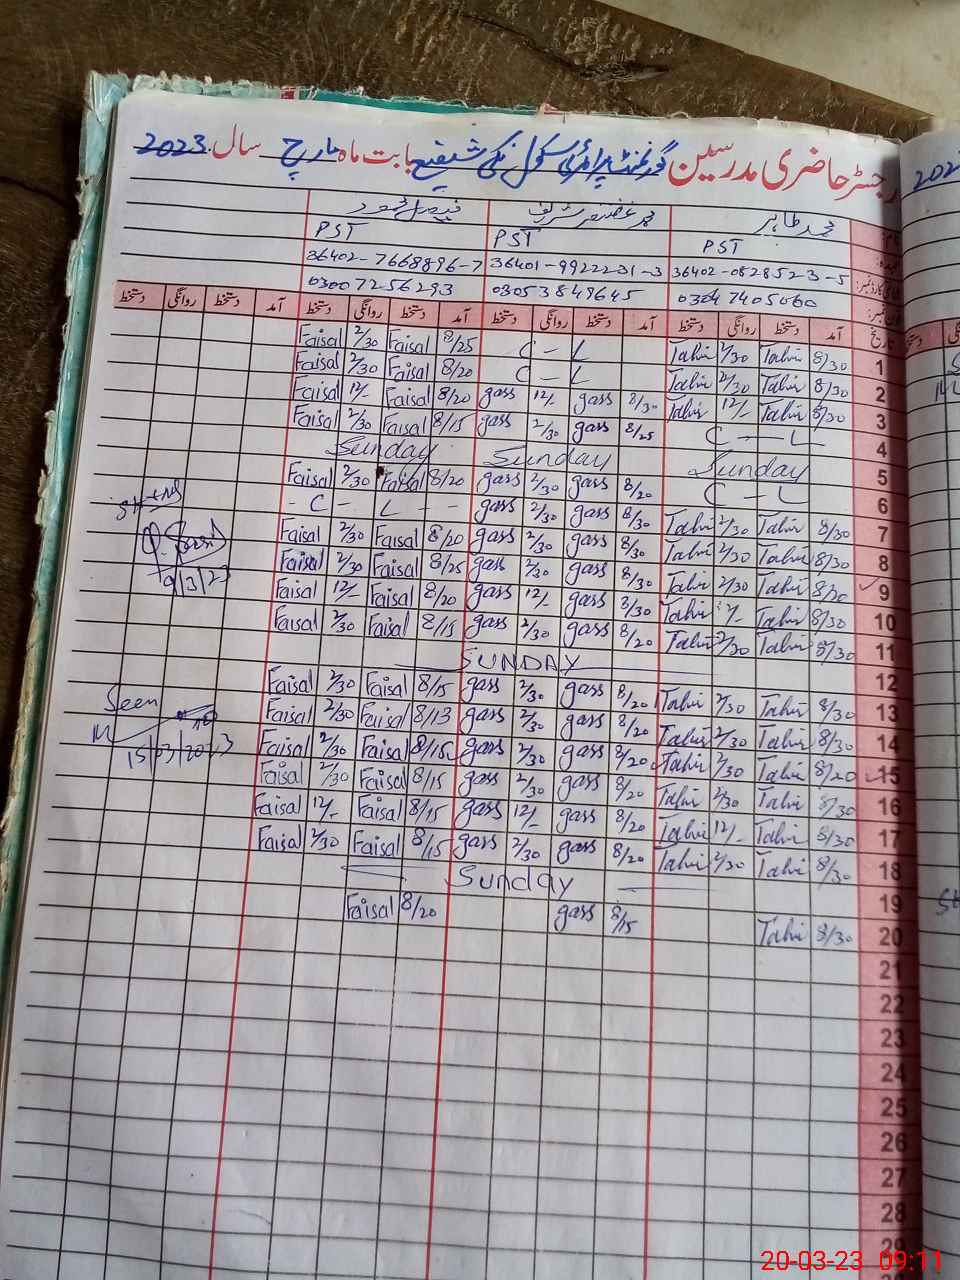 رجسٹر حاضری مدرسین گورنمنٹ پرائمری سکول نکی شفیع بابت ماہ مارچ سال 2023
محمد طاہر محمد غضنفر شریف فیصل محمود
PST PST PST
36402-7668896-7 36401-9922231-3 36402-0828523-5
03007256293 03053849645 03047405060
تاریخ آمد دستخط روانگی دستخط آمد دستخط روانگی دستخط آمد دستخط روانگی دستخط آمد دستخط روانگی دستخط
Faisal 2/30 Faisal 8/25 C - L Tahir 2/30 Tahir 8/30 1
Faisal 2/30 Faisal 8/20 C - L Tahir 2/30 Tahir 8/30 2
Faisal 12/- Faisal 8/20 gass 12/- gass 8/30 Tahir 12/- Tahir 8/30 3
Faisal 2/30 Faisal 8/15 gass 2/30 gass 8/25 C - L - 4
Sunday Sunday Sunday 5
Faisal 2/30 Faisal 8/20 gass 2/30 gass 8/20 C - L 6
- C - L - - gass 2/30 gass 8/30 Tahir 2/30 Tahir 8/30 7
Faisal 2/30 Faisal 8/20 gass 2/30 gass 8/30 Tahir 2/30 Tahir 8/30 8
Faisal 2/30 Faisal 8/25 gass 2/30 gass 8/30 Tahir 2/30 Tahir 8/30 9
9/3/23
Faisal 12/- Faisal 8/20 gass 12/- gass 8/30 Tahir Tahir 8/30 10
Faisal 2/30 Faisal 8/15 gass 2/30 gass 8/20 Tahir 2/30 Tahir 8/30 11
SUNDAY 12
Faisal 2/30 Faisal 8/15 gass 2/30 gass 8/20 Tahir 2/30 Tahir 8/30 13
Seen
Faisal 2/30 Faisal 8/13 gass 2/30 gass 8/20 Tahir 2/30 Tahir 8/30 14
15/03/2023
Faisal 2/30 Faisal 8/15 gass 2/30 gass 8/20 Tahir 2/30 Tahir 8/20 15
Faisal 2/30 Faisal 8/15 gass 2/30 gass 8/20 Tahir 2/30 Tahir 8/30 16
Faisal 12/- Faisal 8/15 gass 12/- gass 8/20 Tahir 12/- Tahir 8/30 17
Faisal 2/30 Faisal 8/15 gass 2/30 gass 8/20 Tahir 2/30 Tahir 8/30 18
Sunday 19
Faisal 8/20 gass 8/15 Tahir 8/30 20
21
22
23
24
25
26
27
28
29
20-03-23 09:11